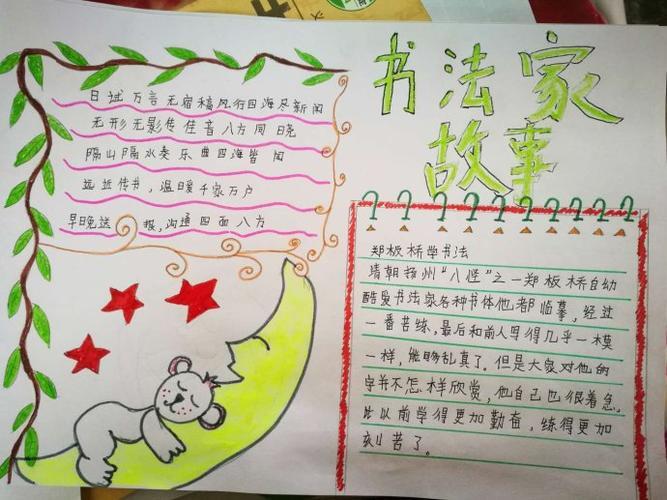 书法家
故事
日试万言无宿稿风行四海尽新闻
无形无影传佳音八方同晓
隔山隔水奏乐曲四海皆闻
远近传书，温暖千家万户
早晚送 报，沟通四面八方
郑板桥学书法
清朝扬州“八怪”之一郑板桥自幼
酷爱书法家各种书体他都临摹，经过
一番苦练，最后和前人写得几乎一模
一样，能够乱真了。但是大家对他的
字并不怎样欣赏，他自己也很着急，
比以前学得更加勤奋，练得更加
刻苦了。